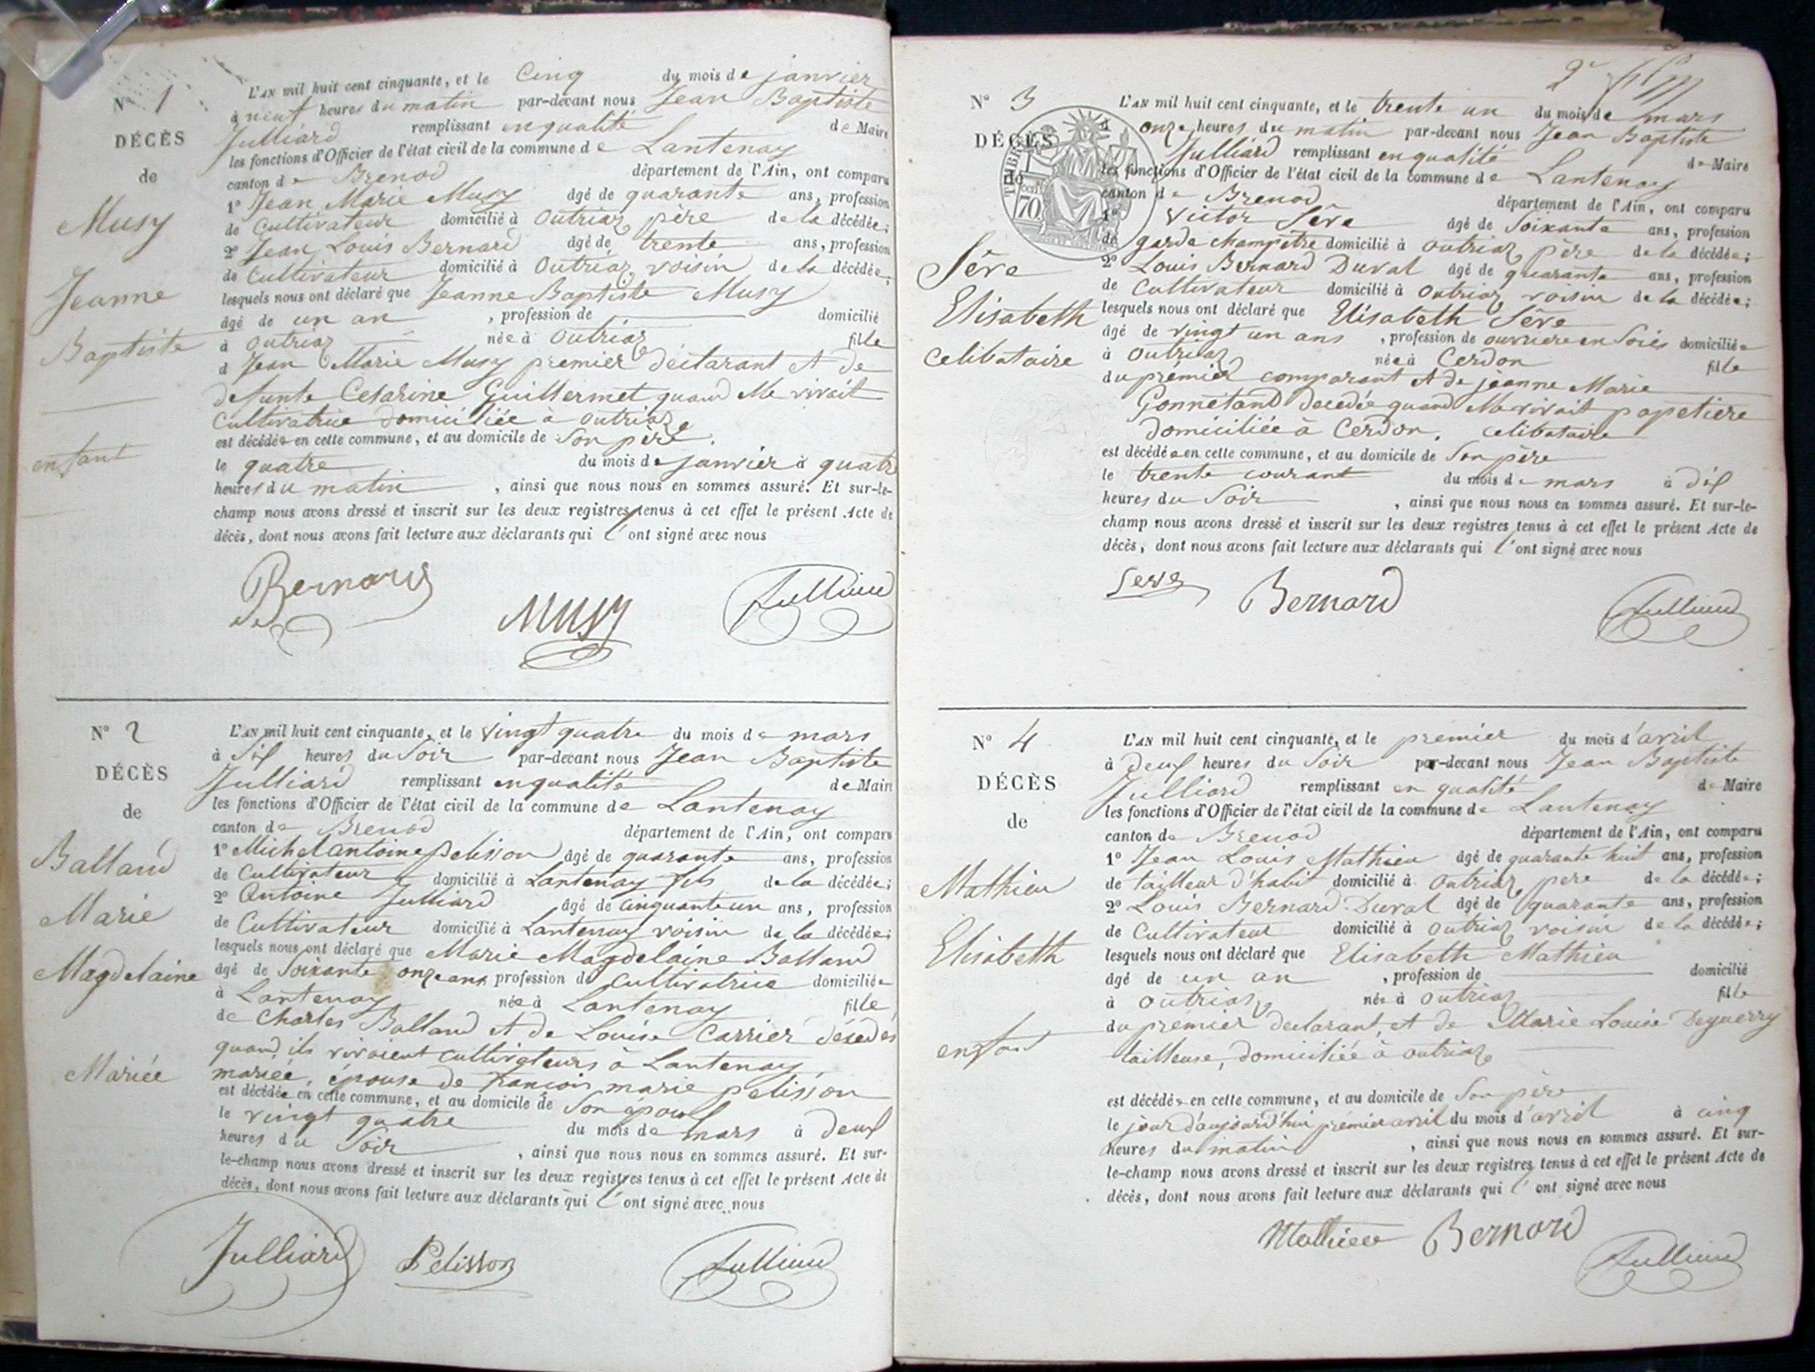 N° 1
DÉCÈS
de
Musy
Jeanne
Baptiste
enfant
L'AN mil huit cent cinquante, et le Cinq du mois de janvier
à neuf heures du matin par-devant nous Jean Baptiste
Julliard remplissant en qualité de Maire
les fonctions d'Officier de l'état civil de la commune de Lantenay
canton de Brenod département de l'Ain, ont comparu
1° Jean Marie Musy âgé de quarante ans, profession
de Cultivateur domicilié à Outriaz père de la décédée;
2° Jean Louis Bernard âgé de trente ans, profession
de Cultivateur domicilié à Outriaz voisin de la décédée;
lesquels nous ont déclaré que Jeanne Baptiste Musy
âgé de un an , profession de domicilié
à Outriaz née à Outriaz fille
d Jean Marie Musy premier déclarant et de
defunte Cesarine Guillermet quand Elle vivait
Cultivatrice domiciliée à Outriaz
est décédée en cette commune, et au domicile de Son père.
le quatre du mois de janvier à quatre
heures du matin , ainsi que nous nous en sommes assuré. Et sur-le-
champ nous avons dressé et inscrit sur les deux registres tenus à cet effet le présent Acte de
décès, dont nous avons fait lecture aux déclarants qui l'ont signé avec nous
Bernard Musy Julliard
N° 2
DÉCÈS
de
Balland
Marie
Magdelaine
Mariée
L'AN mil huit cent cinquante, et le vingt quatre du mois de mars
à Six heures du Soir par-devant nous Jean Baptiste
Julliard remplissant en qualité de Maire
les fonctions d'Officier de l'état civil de la commune de Lantenay
canton de Brenod département de l'Ain, ont comparu
1° Michel antoine pelisson âgé de quarante ans, profession
de Cultivateur domicilié à Lantenay fils de la décédée;
2° Antoine Julliard âgé de cinquante un ans, profession
de Cultivateur domicilié à Lantenay voisin de la décédée;
lesquels nous ont déclaré que Marie Magdelaine Balland
âgé de Soixante onze ans profession de Cultivatrice domiciliée
à Lantenay née à Lantenay fille
de Charles Balland et de Louise Carrier décédés
quand ils vivaient cultivateurs à Lantenay
mariée, épouse de françois marie pelisson
est décédée en cette commune, et au domicile de Son époux
le vingt quatre du mois de mars à deux
heures du Soir , ainsi que nous nous en sommes assuré. Et sur-
le-champ nous avons dressé et inscrit sur les deux registres tenus à cet effet le présent Acte de
décès, dont nous avons fait lecture aux déclarants qui l'ont signé avec nous
Julliard Pelisson Julliard
N° 3
DÉCÈS
de
Sêve
Elisabeth
celibataire
TIMBRE
70
L'AN mil huit cent cinquante, et le trente un du mois de mars
à onze heures du matin par-devant nous Jean Baptiste
Julliard remplissant en qualité de Maire
les fonctions d'Officier de l'état civil de la commune de Lantenay
canton de Brenod département de l'Ain, ont comparu
1° Victor Sêve âgé de Soixante ans, profession
de garde champêtre domicilié à Outriaz père de la décédée;
2° Louis Bernard Duval âgé de quarante ans, profession
de Cultivateur domicilié à Outriaz voisin de la décédée;
lesquels nous ont déclaré que Elisabeth Sêve
âgé de vingt un ans , profession de ouvriere en Soies domiciliée
à Outriaz née à Cerdon fille
du premier comparant et de jeanne Marie
Gonnetand decedée quand Elle vivait papetiere
domiciliée à Cerdon. celibataire
est décédée en cette commune, et au domicile de Son père
le trente courant du mois de mars à dix
heures du Soir , ainsi que nous nous en sommes assuré. Et sur-le-
champ nous avons dressé et inscrit sur les deux registres tenus à cet effet le présent Acte de
décès, dont nous avons fait lecture aux déclarants qui l'ont signé avec nous
Seve Bernard Julliard
N° 4
DÉCÈS
de
Mathieu
Elisabeth
enfant
L'AN mil huit cent cinquante, et le premier du mois d'avril
à deux heures du Soir par-devant nous Jean Baptiste
Julliard remplissant en qualité de Maire
les fonctions d'Officier de l'état civil de la commune de Lantenay
canton de Brenod département de l'Ain, ont comparu
1° Jean Louis Mathieu âgé de quarante huit ans, profession
de tailleur d'habit domicilié à Outriaz père de la décédée;
2° Louis Bernard Duval âgé de quarante ans, profession
de Cultivateur domicilié à Outriaz voisin de la décédée;
lesquels nous ont déclaré que Elisabeth Mathieu
âgé de un an , profession de domicilié
à Outriaz née à Outriaz fille
du premier declarant, et de Marie Louise Deguerry
tailleuse, domiciliée à Outriaz
est décédée en cette commune, et au domicile de Son père
le jour d'aujourd'hui premier avril du mois d'avril à cinq
heures du matin , ainsi que nous nous en sommes assuré. Et sur-
le-champ nous avons dressé et inscrit sur les deux registres tenus à cet effet le présent Acte de
décès, dont nous avons fait lecture aux déclarants qui l'ont signé avec nous
Mathieu Bernard Julliard